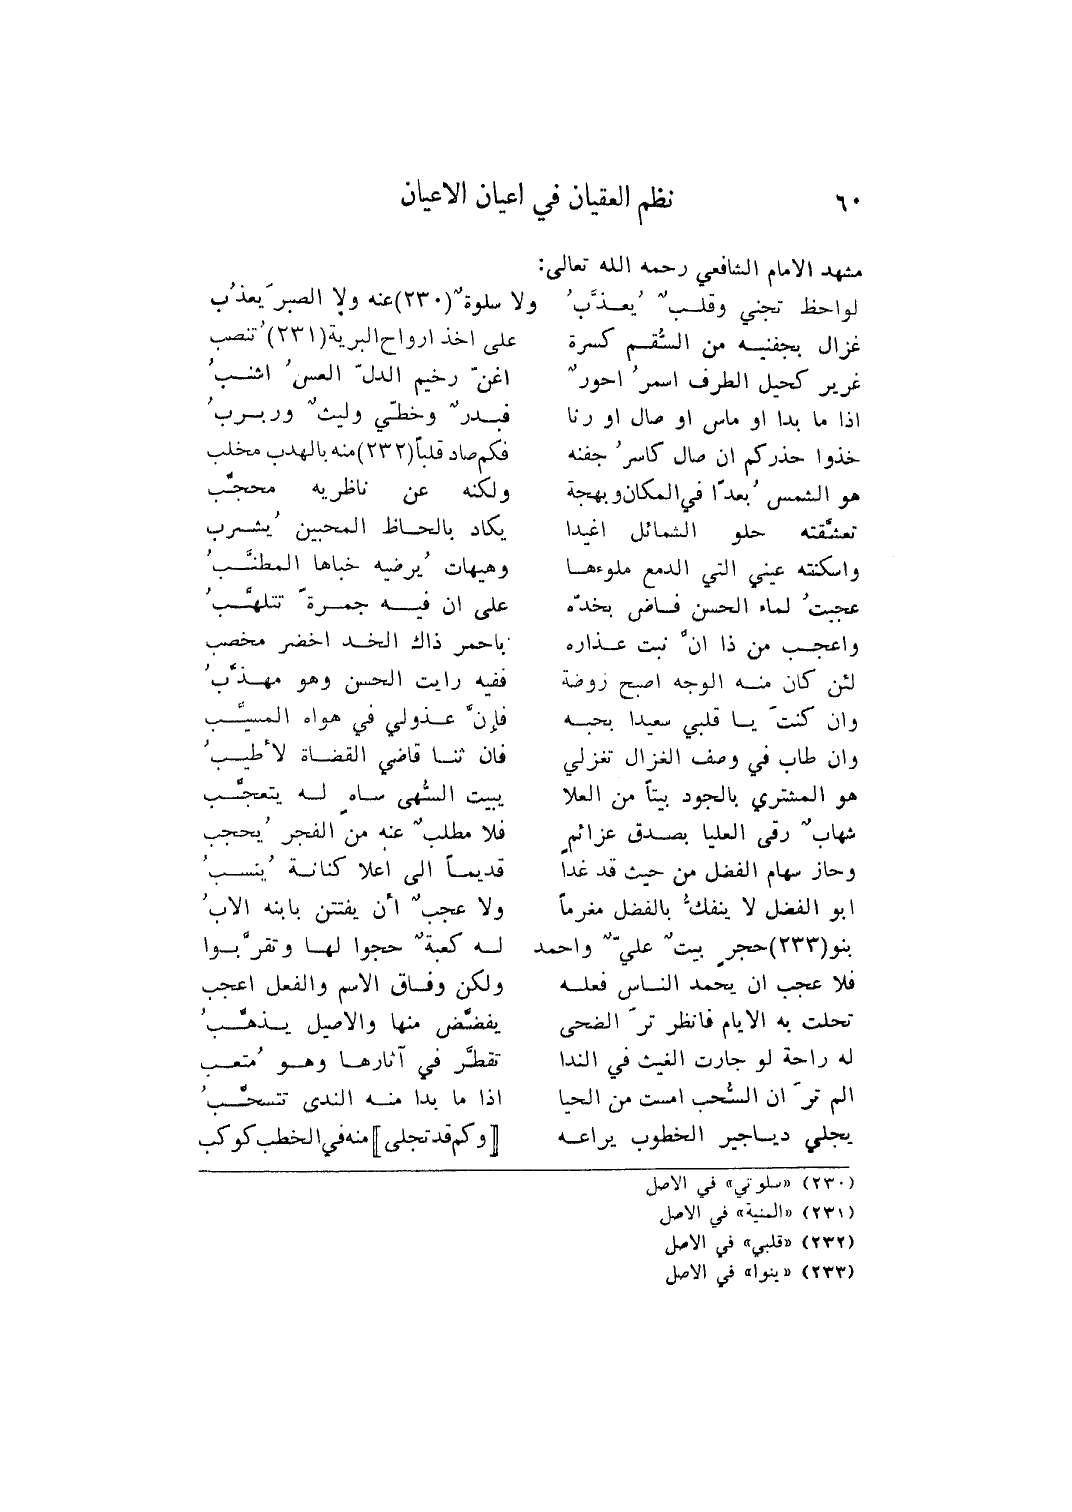 ٦٠ نظم العقيان في اعيان الاعيان
مشهد الامام الشافعي رحمه الله تعالى:
لواحظ تجني وقلبٌ يُعذَّبُ ولا سلوةٌ(٢٣٠)عنه ولا الصبرَ يعذُب
غزال بجفنيه من السُّقم كسرة على اخذ ارواح البرية(٢٣١)تُنصب
غرير كحيل الطرف اسمرُ احورٌ اغنّ رخيم الدلّ العسُ اشنبُ
اذا ما بدا او ماس او صال او رنا فبدرٌ وخطّي وليثٌ وربربُ
خذوا حذركم ان صال كاسرُ جفنه فكم صاد قلباً(٢٣٢)منه بالهدب مخلب
هو الشمس بُعدًا في المكان وبهجة ولكنه عن ناظريه محجَّب
تعشَّقته حلو الشمائل اغيدا يكاد بالحاظ المحبين يُشرب
واسكنته عيني التي الدمع ملوءها وهيهات يُرضيه خباها المطنَّبُ
عجبتُ لماء الحسن فاض بخدّه على ان فيه جمرةً تتلهَّبُ
واعجب من ذا انَّ نبت عذاره باحمر ذاك الخد اخضر مخصب
لئن كان منه الوجه اصبح روضة ففيه رايت الحسن وهو مهذَّبُ
وان كنتَ يا قلبي سعيدا بحبه فإنَّ عذولي في هواه المسيَّب
وان طاب في وصف الغزال تغزلي فان ثنا قاضي القضاة لأطيبُ
هو المشتري بالجود بيتاً من العلا يبيت السُّهى ساهٍ له يتعجَّب
شهابٌ رقى العليا بصدق عزائمٍ فلا مطلبٌ عنه من الفجر يُحجب
وحاز سهام الفضل من حيث قد غدا قديماً الى اعلا كنانة يُنسبُ
ابو الفضل لا ينفكُّ بالفضل مغرماً ولا عجبٌ أن يفتتن بابنه الابُ
بنو(٢٣٣)حجرٍ بيتٌ عليٌّ واحمد له كعبةٌ حجوا لها وتقرَّبوا
فلا عجب ان يحمد الناس فعله ولكن وفاق الاسم والفعل اعجب
تحلت به الايام فانظر ترَ الضحى يفضَّض منها والاصيل يذهَّبُ
له راحة لو جارت الغيث في الندا تقطَّر في آثارها وهو مُتعب
الم ترَ ان السُّحب امست من الحيا اذا ما بدا منه الندى تتسحَّبُ
يجلي دياجير الخطوب يراعه [وكم قد تجلى] منه في الخطب كوكب
(٢٣٠) «سلوتي» في الاصل
(٢٣١) «المنية» في الاصل
(٢٣٢) «قلبي» في الاصل
(٢٣٣) «بنوا» في الاصل